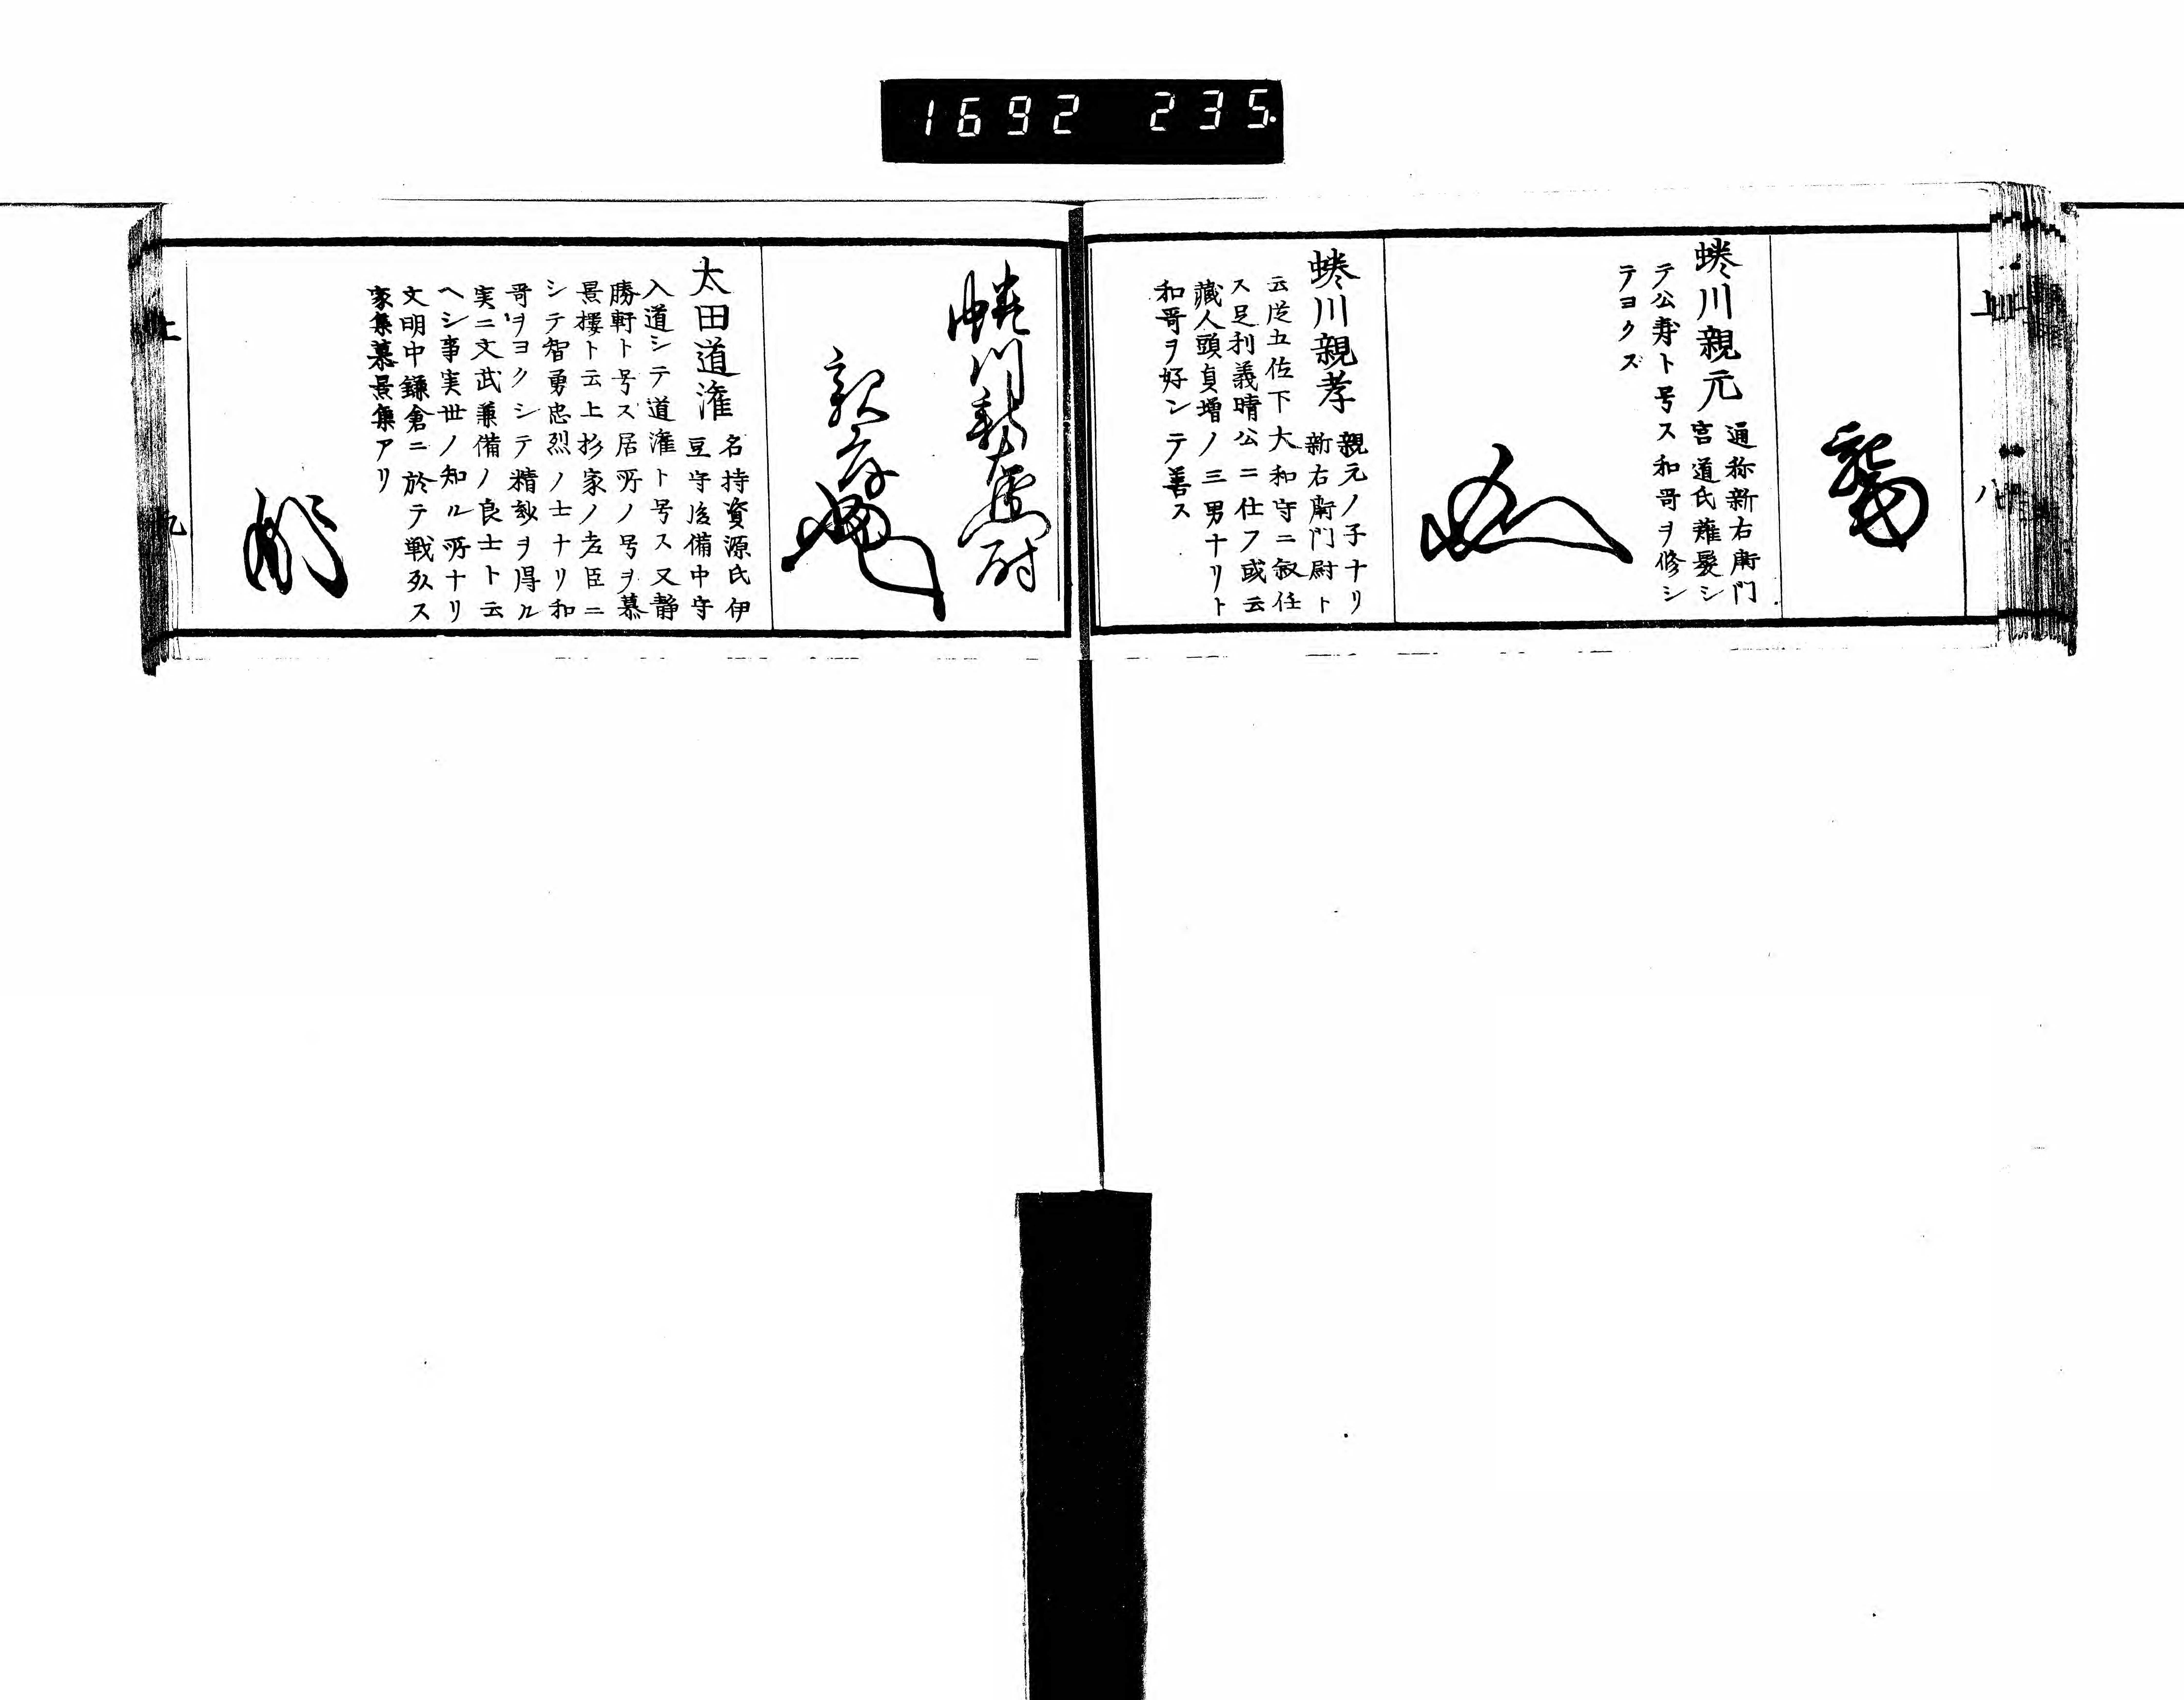 1692 235
上
八
蜷川親元
通称新右衛門
宮道氏薙髪シ
テ公寿ト号ス和哥ヲ修シ
テヨクズ
蜷川親孝
親元ノ子ナリ
新右衛門尉ト
云従五佐下大和守ニ叙任
ス足利義晴公ニ仕フ或云
蔵人頭貞増ノ三男ナリト
和哥ヲ好ンテ善ス
蜷川新右衛門尉
親孝
太田道潅
名持資源氏伊
豆守後備中守
入道シテ道潅ト号ス又静
勝軒ト号ス居所ノ号ヲ慕
景楼ト云上杉家ノ老臣ニ
シテ智勇忠烈ノ士ナリ和
哥ヲヨクシテ精妙ヲ得ル
実ニ文武兼備ノ良士ト云
ヘシ事実世ノ知ル所ナリ
文明中鎌倉ニ於テ戦死ス
家集慕景集アリ
上
九